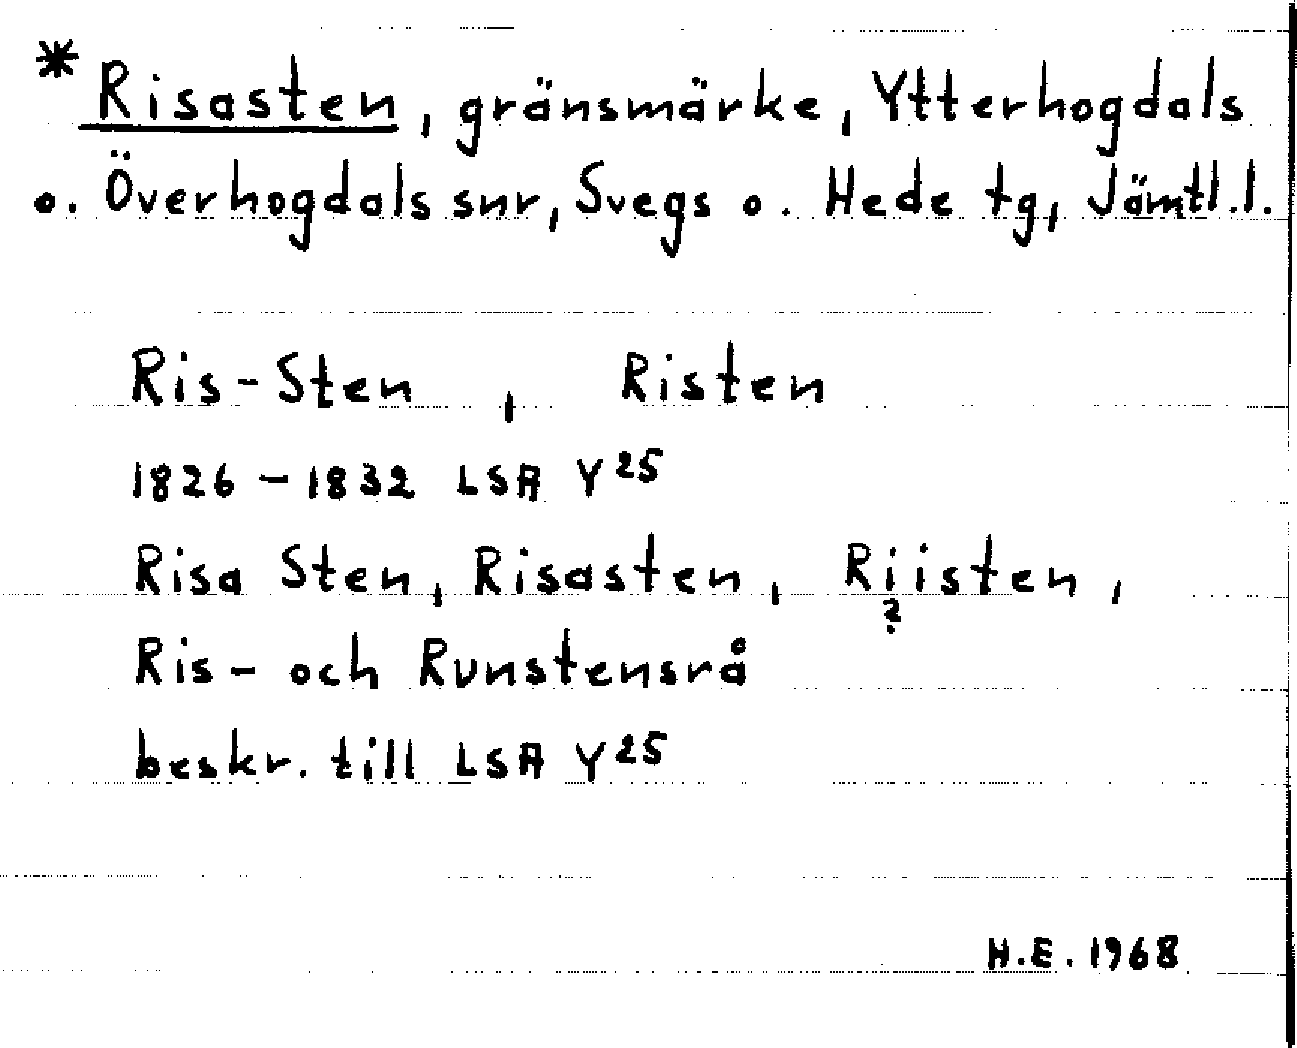 * Risasten, gränsmärke, Ytterhogdals
o. Överhogdals snr, Svegs o. Hede tg, Jämtl.l.
Ris-Sten, Risten
1826-1832 LSA Y25
Risa Sten, Risasten, Riisten,
?
Ris- och Runstensrå
beskr. till LSA Y25
H.E. 1968